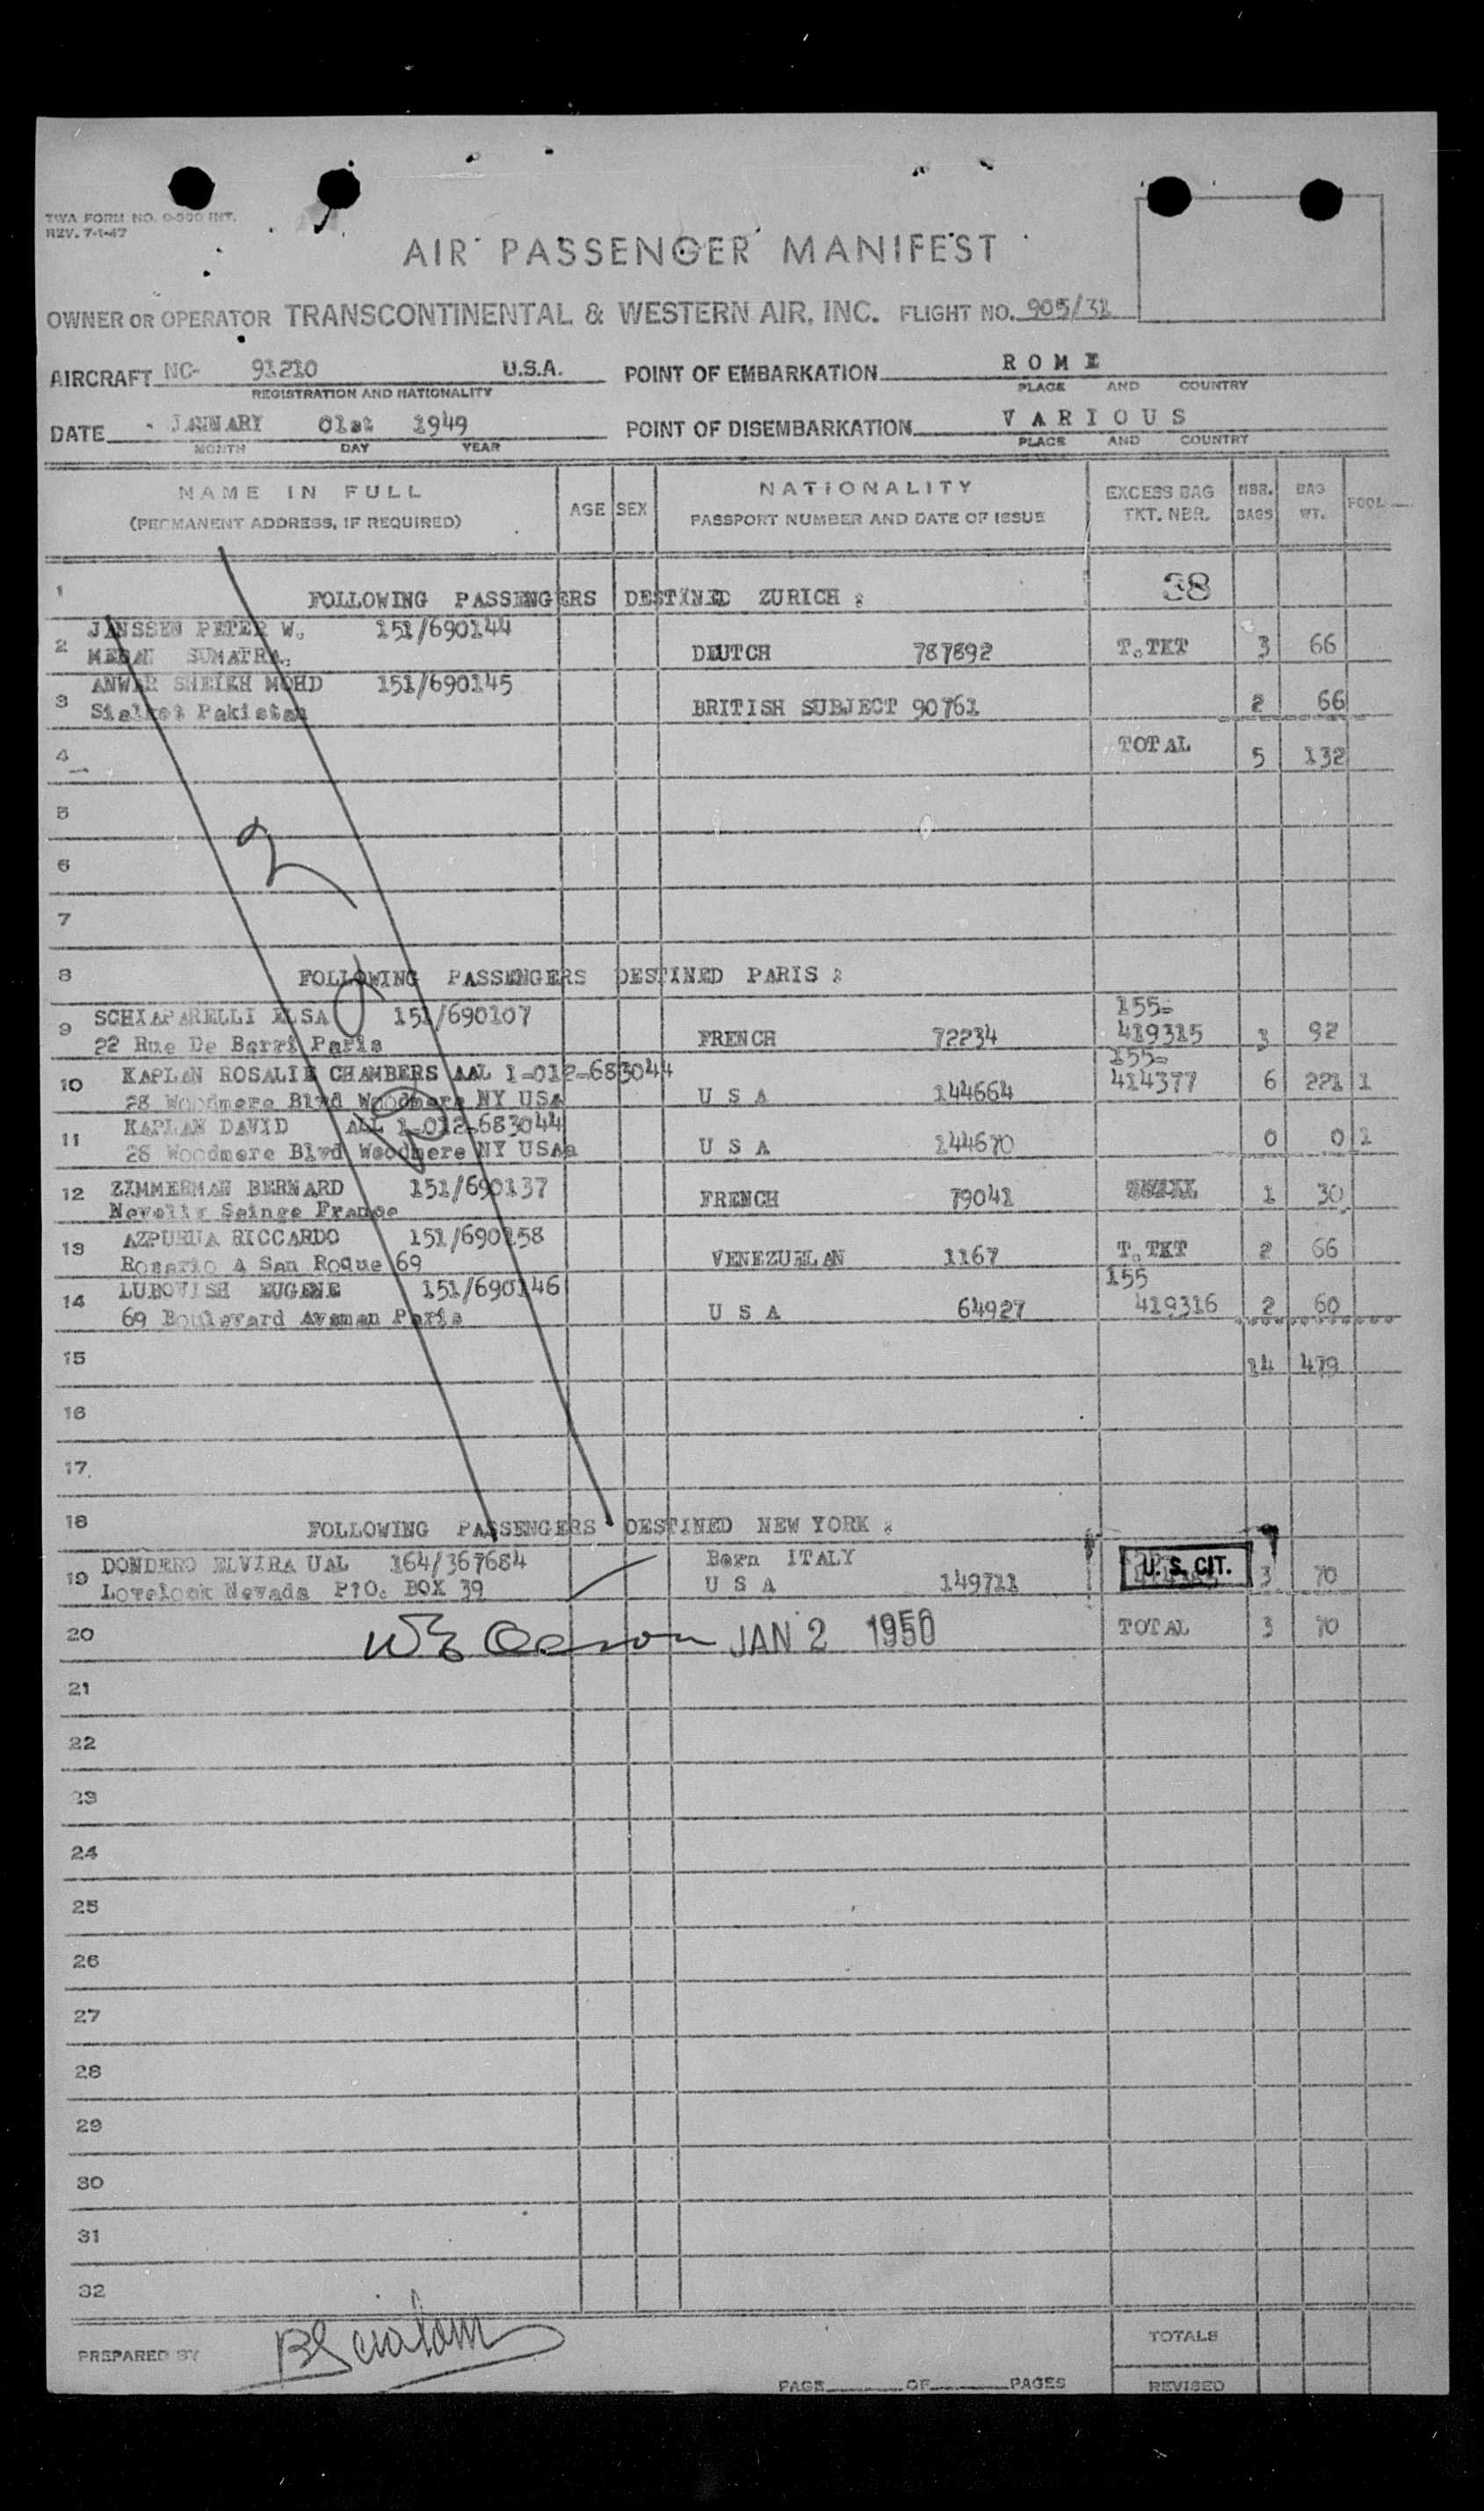 TWA FORM NO. O-900 INT.
REV. 7-1-47
AIR PASSENGER MANIFEST
OWNER OR OPERATOR TRANSCONTINENTAL & WESTERN AIR, INC. FLIGHT NO. 905/31
AIRCRAFT NC- 91210 U.S.A. POINT OF EMBARKATION ROME
REGISTRATION AND NATIONALITY PLACE AND COUNTRY
DATE JANUARY 01st 1949 POINT OF DISEMBARKATION VARIOUS
MONTH DAY YEAR PLACE AND COUNTRY
NAME IN FULL AGE SEX NATIONALITY EXCESS BAG NBR. BAG POOL
(PERMANENT ADDRESS, IF REQUIRED) PASSPORT NUMBER AND DATE OF ISSUE TKT. NBR. BAGS WT.
1 FOLLOWING PASSENGERS DESTINED ZURICH : 38
JANSSEN PETER W. 151/690144
2 MEDAN SUMATRA. DEUTCH 787892 T.TKT 3 66
ANWAR SHEIKH MOHD 151/690145
3 Sialkot Pakistan BRITISH SUBJECT 90761 2 66
4 TOTAL 5 132
5
6
7
8 FOLLOWING PASSENGERS DESTINED PARIS :
SCHIAPARELLI ELSA 151/690107 155-
9 22 Rue De Berri Paris FRENCH 72234 419315 3 92
KAPLAN ROSALIE CHAMBERS AAL 1-012-683044 155-
10 28 Woodmere Blvd Woodmere NY USA U S A 144664 414377 6 221 1
KAPLAN DAVID AAL 1-012-683044
11 28 Woodmere Blvd Woodmere NY USA U S A 144670 0 0 1
12 ZIMMERMAN BERNARD 151/690137
Nevelly Seinge France FRENCH 79041 1 30
AZPURUA RICCARDO 151/690158
13 Rosario A San Roque 69 VENEZUELAN 1167 T.TKT 2 66
LUBOVISH EUGENE 151/690146 155
14 69 Boulevard Avsman Paris U S A 64927 419316 2 60
15 14 479
16
17.
18 FOLLOWING PASSENGERS DESTINED NEW YORK :
DONDERO ELVIRA UAL 164/367684 Born ITALY
19 Lovelock Nevada P?O. BOX 39 U S A 149711 U.S. CIT. 3 70
20 JAN 2 1950 TOTAL 3 70
21
22
23
24
25
26
27
28
29
30
31
32
PREPARED BY TOTALS
PAGE OF PAGES REVISED